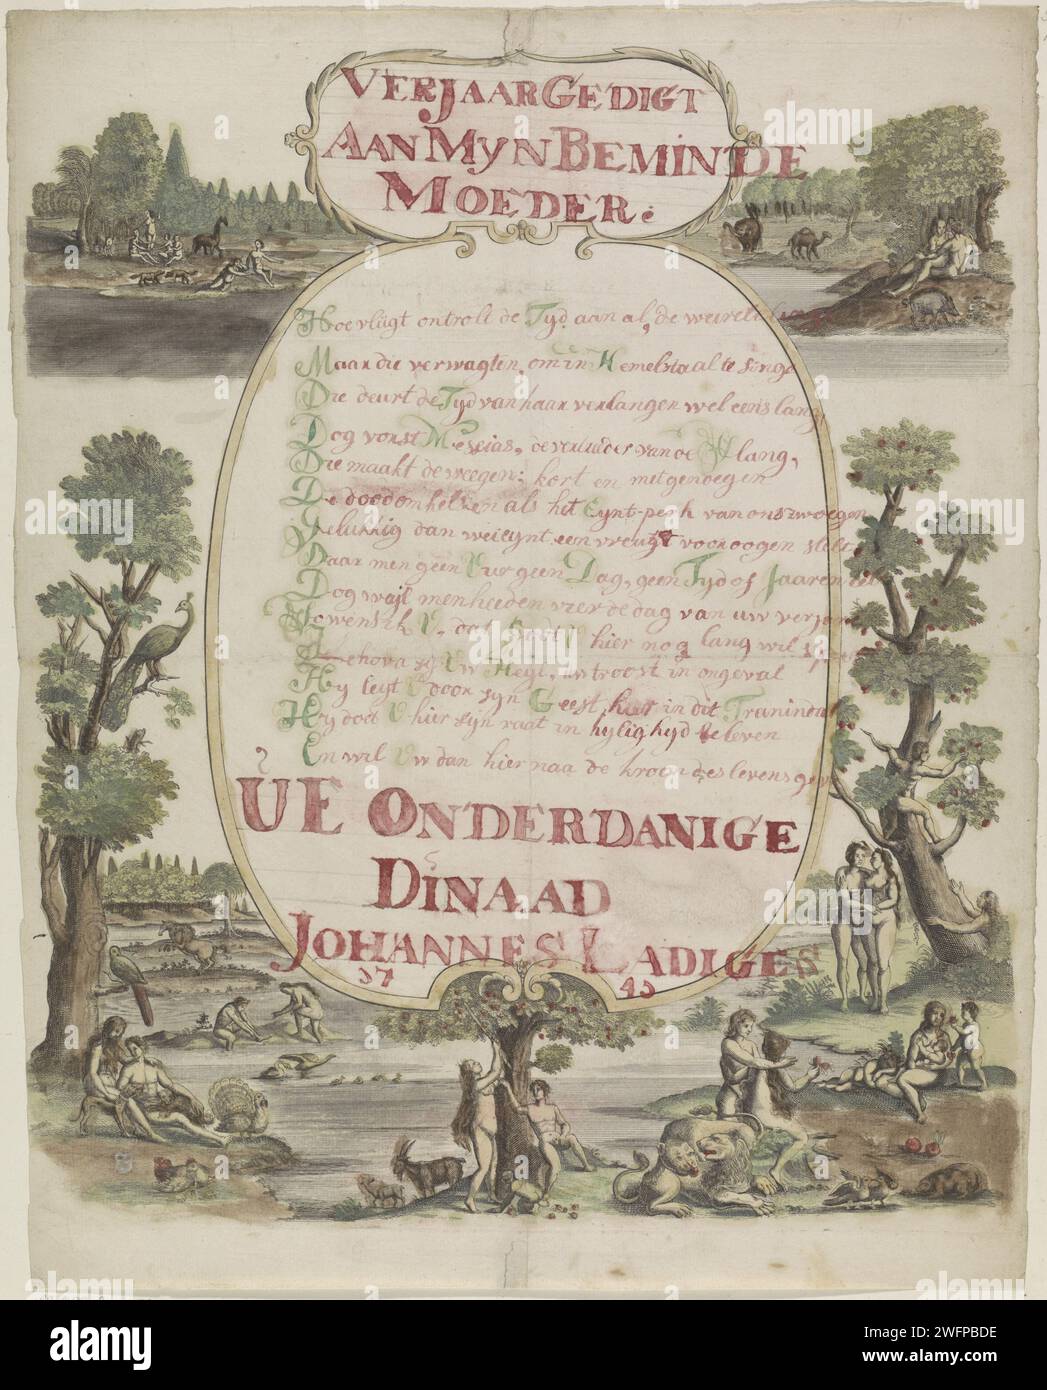 VERJAARGEDIGT
AAN MYN BEMINDE
MOEDER:
Hoe vlugt ontrolt de Tyd aan al, de werelt
Maar die verwagten, om in Hemelstaal te singe
Die deurt de Tyd van haar verlangen wel eens lang,
Dog vorst Messias, de van de Slang,
Die maakt de weegen: kort en met genoegen
De dood omhelzen als het Eynt-perk van ons zwoegen
Gelukkig dan wei eynt, een vreugt voor oogen stelt
Daar men geen Uur geen Dag, geen Tyd of Jaaren telt
Dog wajl men heeden vier de dag van uw verjaren
Zo wens ik U, dat Godt U hier nog lang wil sparen
Jehova sy Uw Heyl, uw troost in ongeval
Hy leyt U door syn Geest hier in dit Tranindal
Hy doet U hier syn raat in hylighyd beleven
En wil Uw dan hier naa de kroon des levens geven
UE ONDERDANIGE
DINAAD
JOHANNES LADIGES
17 43
alamy
Image ID: 2WFPBDE
www.alamy.com